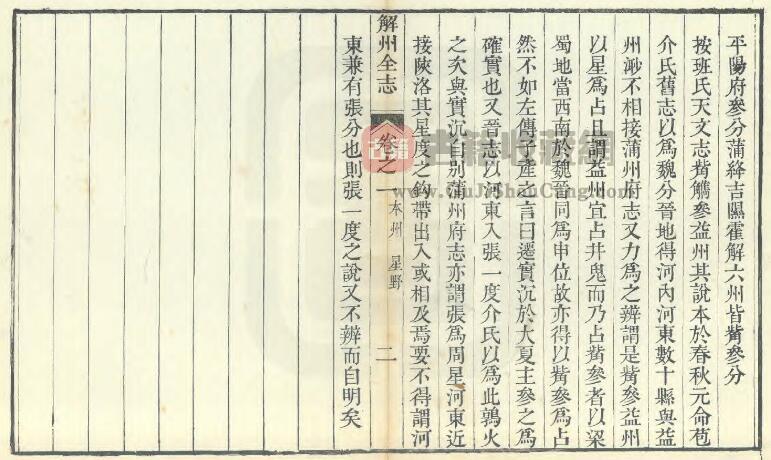 平陽府參分蒲絳吉隰霍解六州皆觜參分
按班氏天文志觜觿參益州其說本於春秋元命苞
介氏舊志以爲魏分晉地得河內河東數十縣與益
州渺不相接蒲州府志又力爲之辨謂是觜參益州
以星爲占且謂益州宜占井鬼而乃占觜參者以梁
蜀地當西南於魏晉同爲申位故亦得以觜參爲占
然不如左傳子產之言曰遷實沉於大夏主參之爲
確實也又晉志以河東入張一度介氏以爲此鶉火
之次與實沉自別蒲州府志亦謂張爲周星河東近
接陝洛其星度之鈎帶出入或相及焉要不得謂河
東兼有張分也則張一度之說又不辨而自明矣
解州全志
卷之一
本州 星野
二
古籍收藏網
www.GuJiShouCang.com